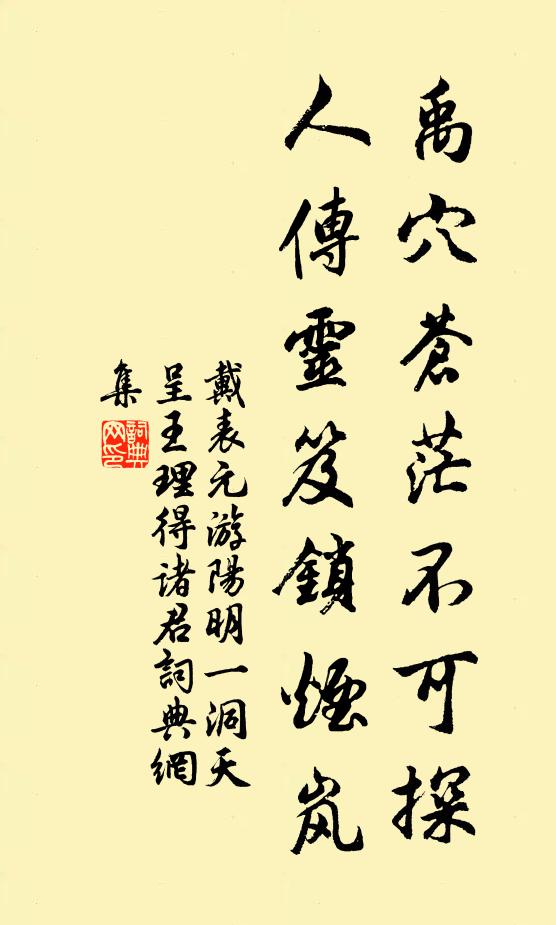 禹穴蒼茫不可探
人傳靈笈鎖煙岚
戴表元游陽明一洞天
呈王理得诸君詞典網
集
詞典
网印